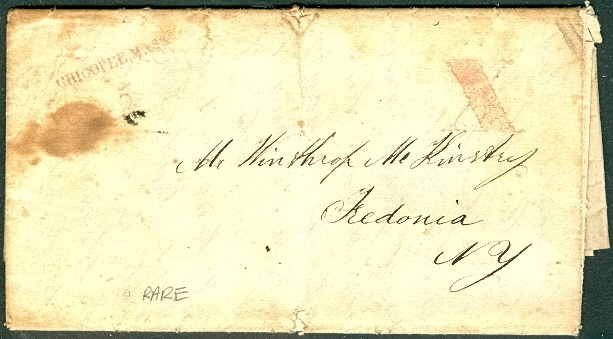 CHICOPEE MASS
Mr Winthrop McKinstry
Fredonia
NY
RARE